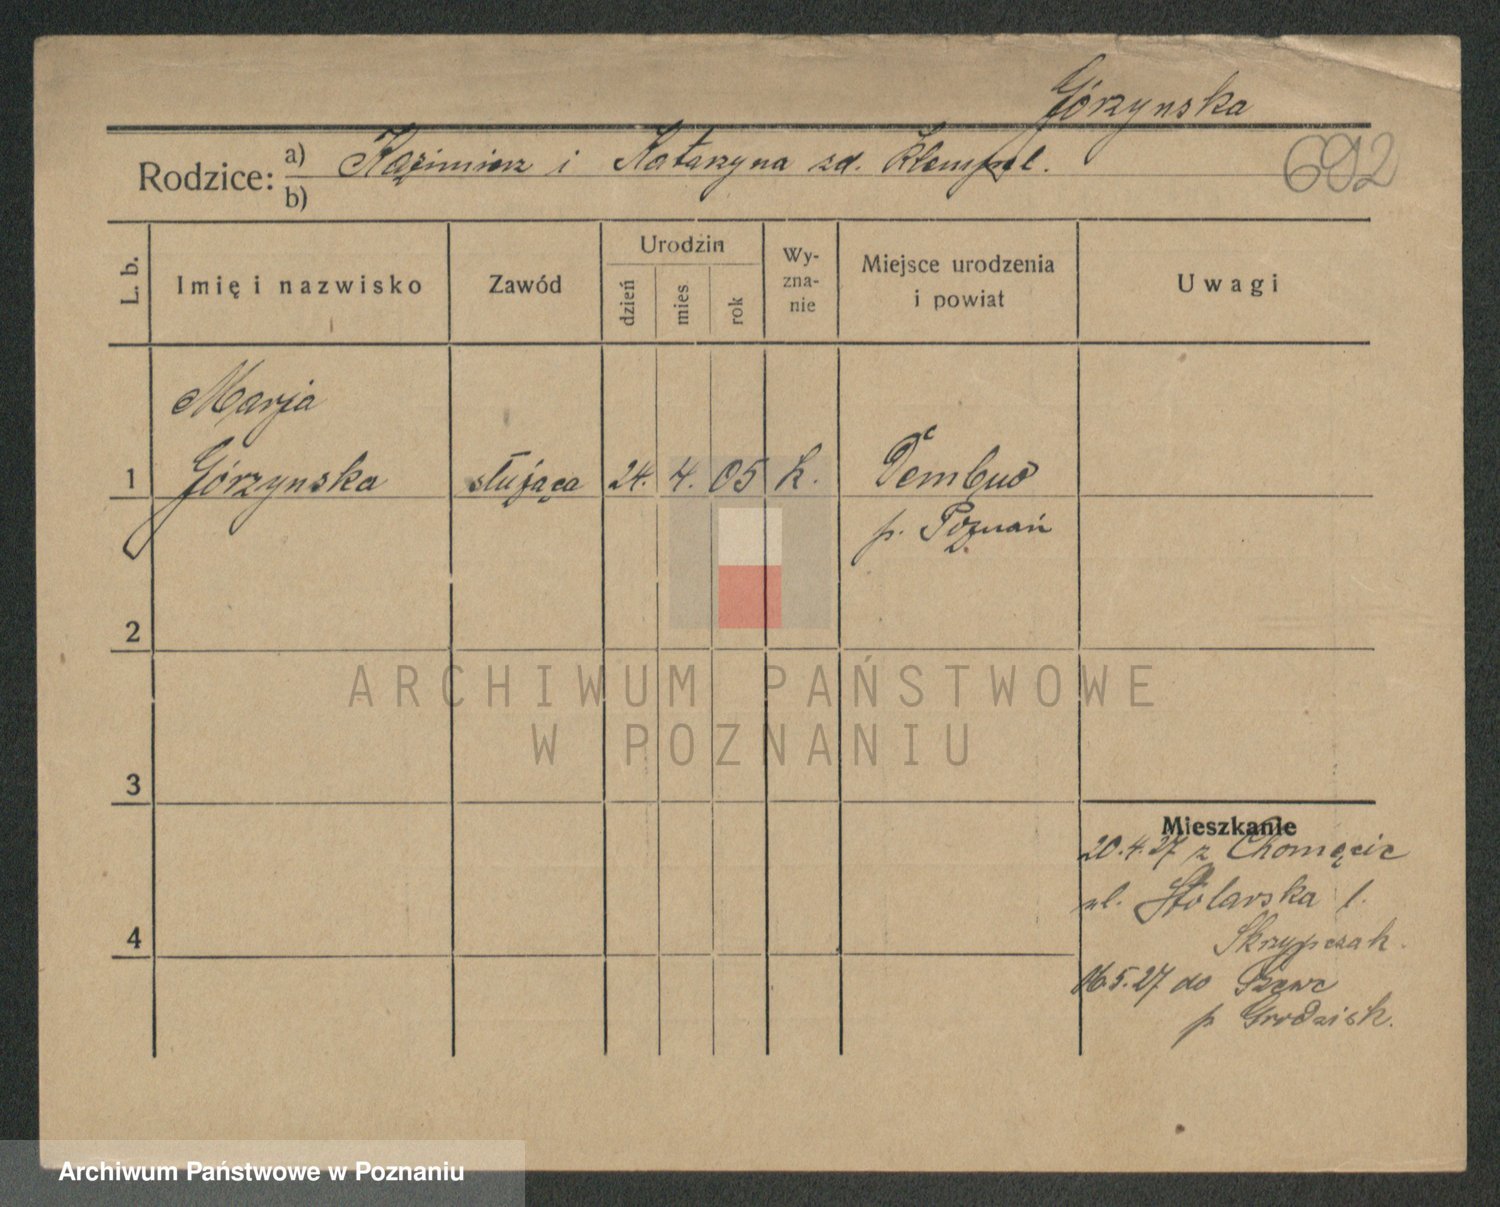 Górzynska
Rodzice: a) Kazimierz i Katarzyna zd. Klempel.
b)
692
L. b.
Imię i nazwisko
Zawód
Urodzin
dzień
mies.
rok
Wy-
zna-
nie
Miejsce urodzenia
i powiat
Uwagi
Marja
1 Górzynska służąca 24. 4. 05 k.
p. Poznań
2
3
4
ARCHIWUM PAŃSTWOWE
W POZNANIU
Mieszkanie
20.4.27 z Chomęcic
ul. Stolarska 1.
Skrzypczak.
5.27 do
p Grodzisk.
Archiwum Państwowe w Poznaniu